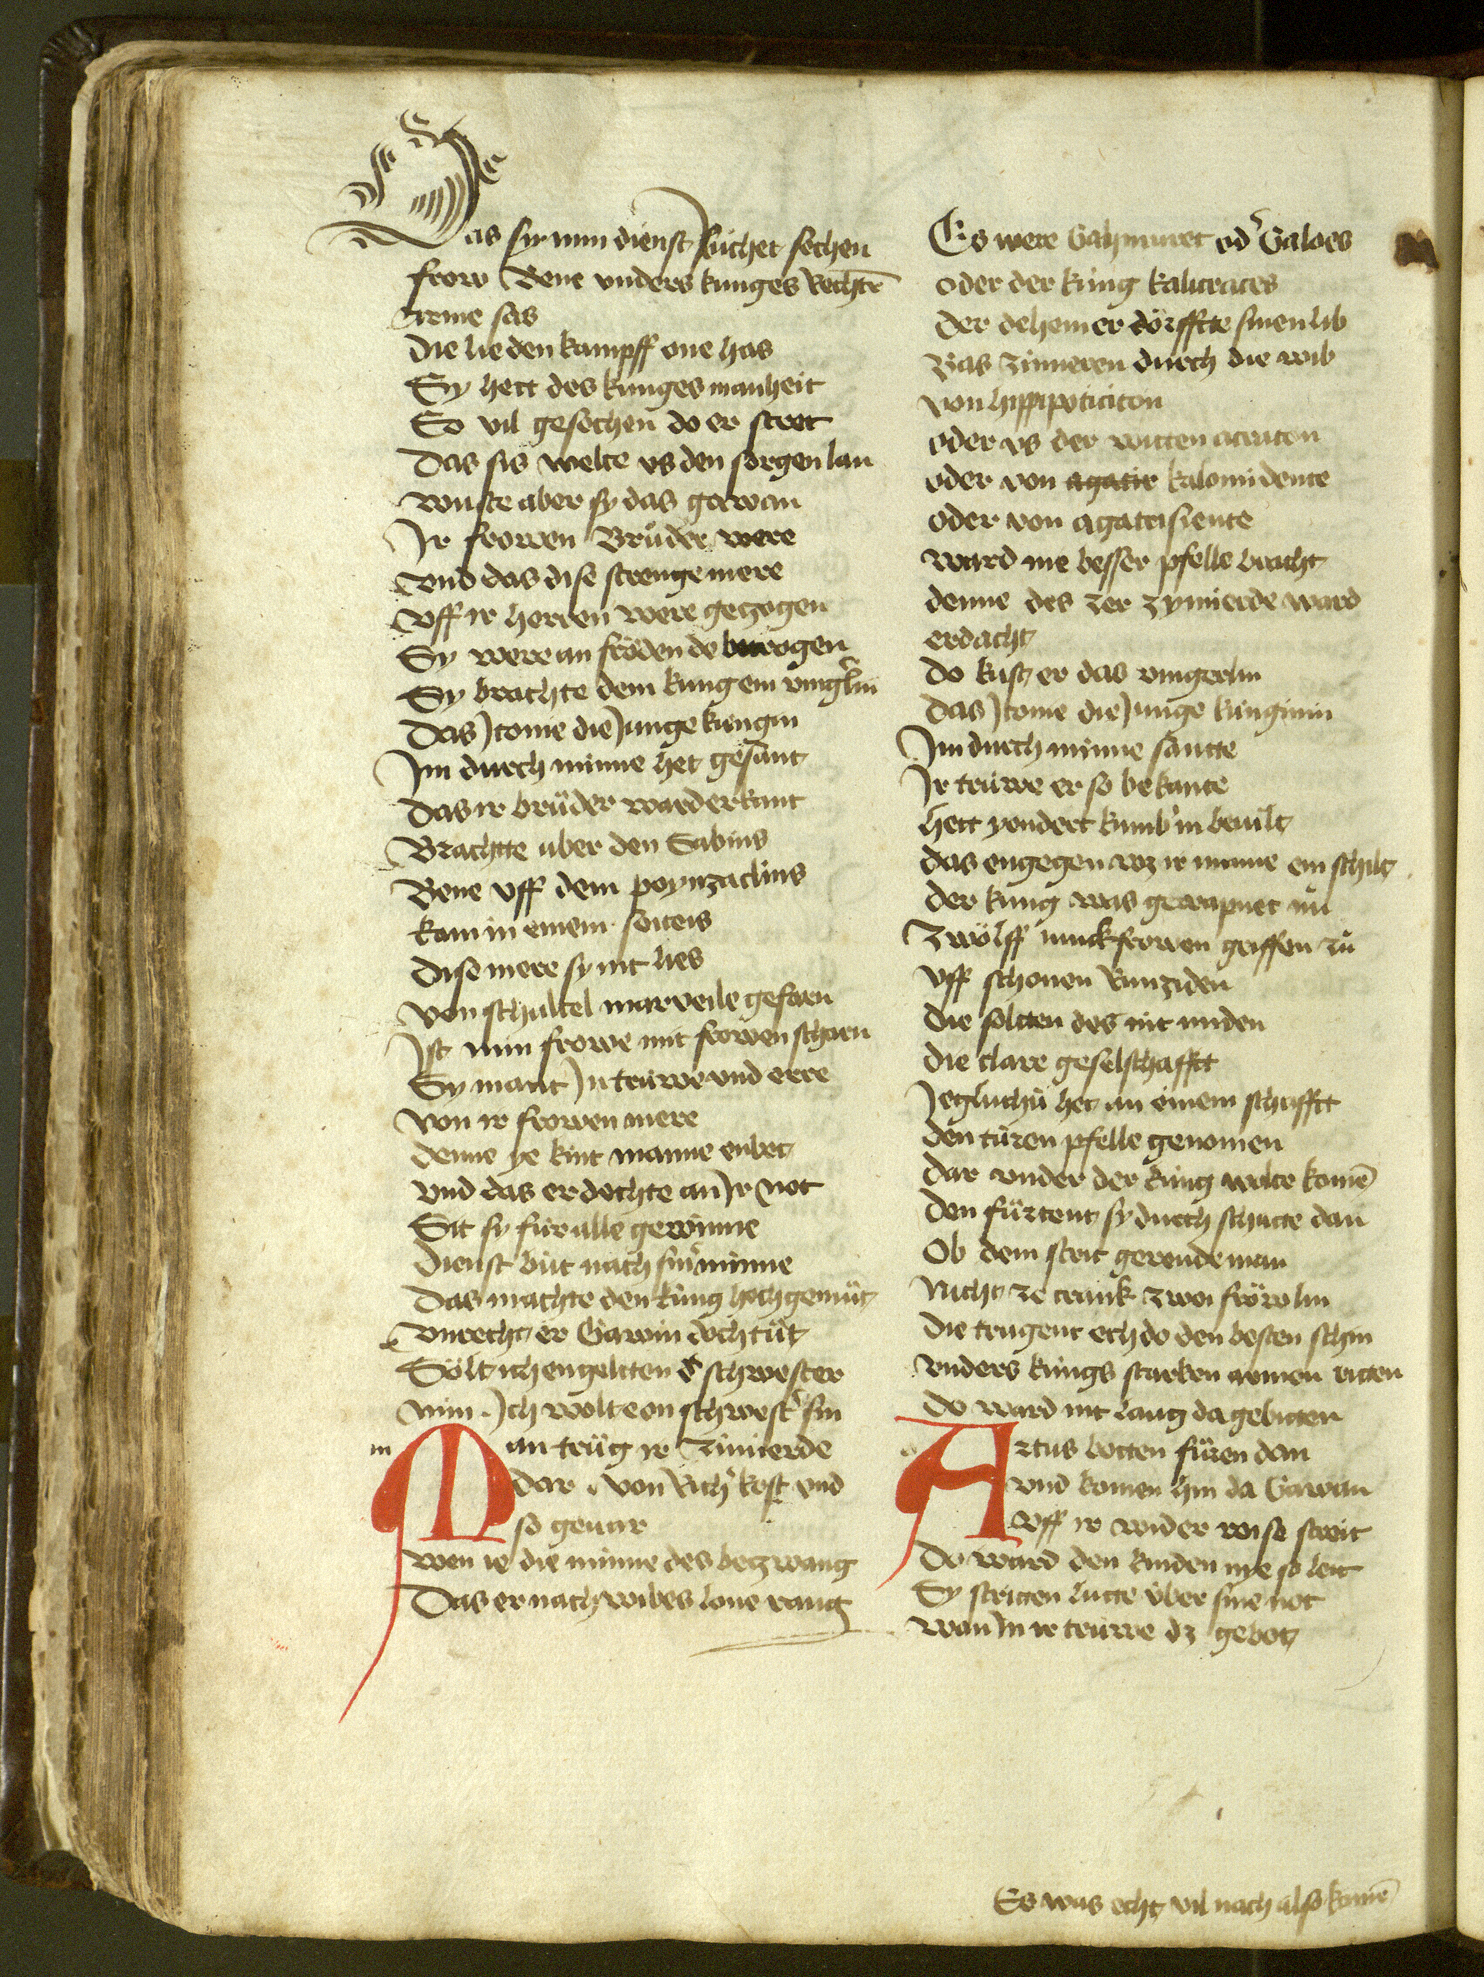 Das sy min dienst sůchet sechen
frow Bene vnders kunges Rechtē
arme sas
Die lie den kampff one has
Sy hett des kunges manheit
So vil gesechen do er streit
Das sis welte vs den sorgen lan
wuste aber sy das gawan
Jr frowen Brůder were
vnd das dise strenge mere
Vff ir herren were gezogen
Sy were an fröden do betrogen
Sy brachte dem kung ein vingerlin
Das Jtonie die Junge kungin
Jm durch minne het gesant
Das ir brůder ward erkant
Brachtte uber den Sabins
Bene vff dem poynzaclins
kam in einem seiteis
Dise mere sy nit lies
von schaltel marveile gefarn
Jst min frowe mit frowen scharn
Sy mant Jn truwe vnd erre
von ir frowen mere
denne ye kint manne enbot
vnd das er dechte an Jr not
Sit sy für alle gewinne
Dienst büt nach sin minne
Das machte den kung hochgemüt
vnrecht er Gawin doch tüt
Sölt ich engeltten d' schwester
min Jch wolte on schwest' sin
Man trůg ir zimierde
dar von Rich' kost vnd
so gevar
wen ie die minne des betzwang
Das er nach wibes lone rang
Es were Gahmuret od' Galoes
oder der küng kalicraces
Der dehein er dörfftte sinen lib
Bas zimeren durch die wib
von hippipoticiton
oder vs der witten acraton
oder von agatir kalomidente
oder von agatirsiente
ward nie besser pfelle bracht
denne des zer zymierde ward
erdacht
Do kust er das vingerlin
Das Jtonie die Junge künginin
Jm durch minne santte
Jr trüwe er so bekante
Hett yendert kumb' in beuilt
das engegen wz ir minne ein schilt
der kung was gewapnet nů
Zwölff iunckfrowen griffen zů
vff schonen Runziden
Die soltten des nit miden
Die clare geselschafft
Jeglichü het an einem schafftt
den türen pfelle genomen
Dar vnder der küng wolte komē
Den fürtent sy durch schatte dan
Ob dem strit gerende man
Nicht ze crank zwoi fröwlin
Die trugent ech do den besten schin
vnders küngs starken armen ritten
Do ward nit lang da gebitten
Artus botten füren dan
vnd komen hin da Gawan
vff ir wider reise streit
Do ward den kinden nye so leit
Sy scriten lutte über sine not
wan Jn ir trüwe dz gebot
Es was echt vil nach also komē